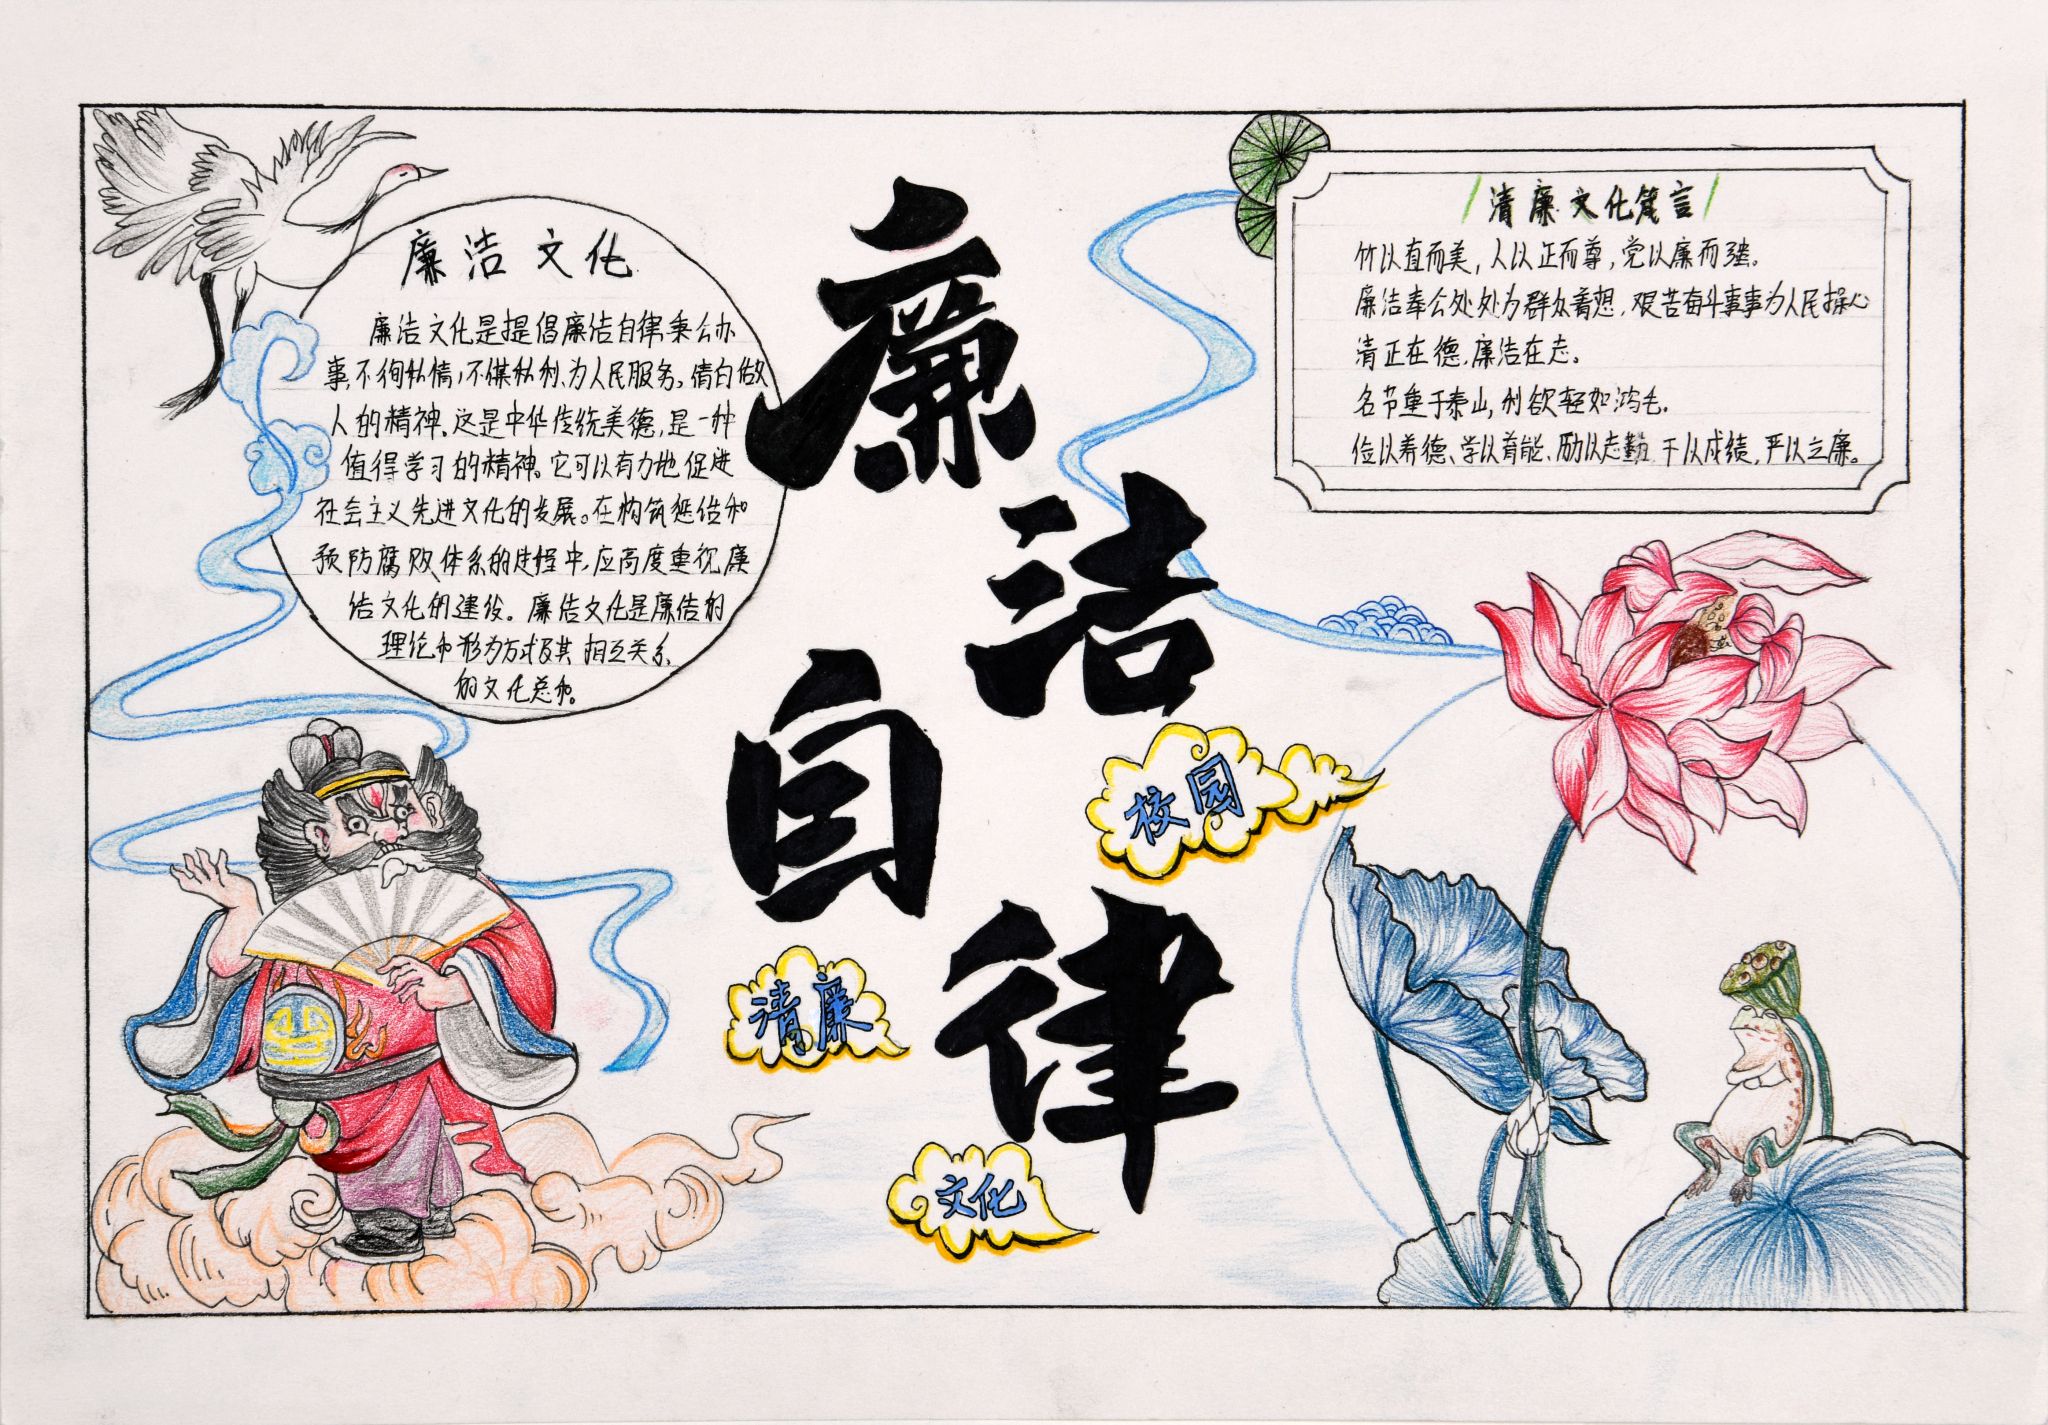 廉洁文化
廉洁文化是提倡廉洁自律,秉公办
事,不徇私情,不谋私利、为人民服务。清白做
人的精神。这是中华传统美德,是一种
值得学习的精神。它可以有力地促进
社会主义先进文化的发展。在构筑惩治和
预防腐败体系的过程中,应高度重视廉
洁文化的建设。廉洁文化是廉洁的
理论和形为方式及其相互关系
的文化总和。
廉洁
自律
清廉文化箴言
竹以直而美,人以正而尊,党以廉而强。
廉洁奉公处处为群众着想,艰苦奋斗事事为人民操心
清正在德,廉洁在志。
名节重于泰山,利欲轻如鸿毛。
俭以养德、学以育能、励以志勤、干以成绩,严以立廉。
校园
清廉
文化